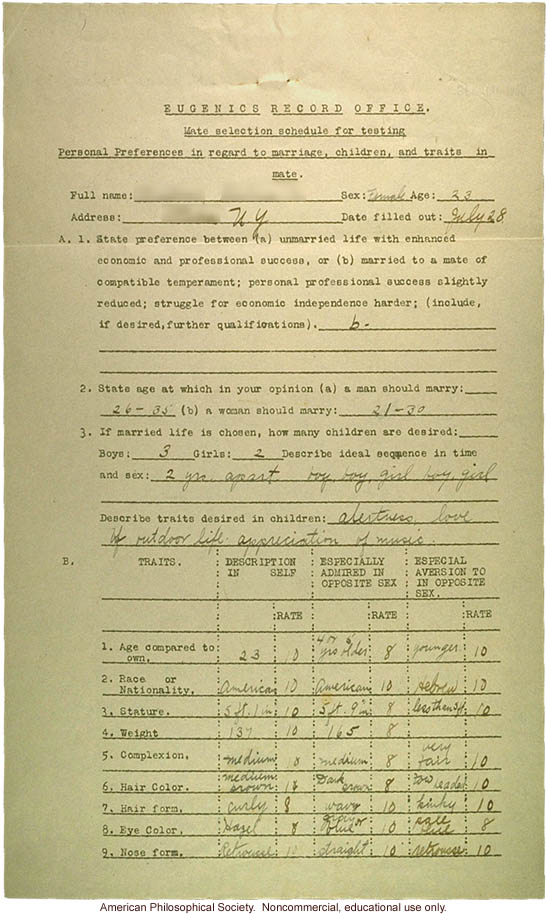 EUGENICS RECORD OFFICE.
Mate selection schedule for testing
Personal Preferences in regard to marriage, children, and traits in
mate.
Full name: Sex: Female Age: 23
Address: N Y Date filled out: July 28
A. 1. State preference between (a) unmarried life with enhanced
economic and professional success, or (b) married to a mate of
compatible temperament; personal professional success slightly
reduced; struggle for economic independence harder; (include,
if desired, further qualifications). b-
2. State age at which in your opinion (a) a man should marry:
26-35 (b) a woman should marry: 21-30
3. If married life is chosen, how many children are desired:
Boys: 3 Girls: 2 Describe ideal sequence in time
and sex: 2 yrs. apart boy, boy, girl boy, girl
Describe traits desired in children: alertness, love
of outdoor life. appreciation of music.
B. TRAITS. DESCRIPTION IN SELF ESPECIALLY ADMIRED IN OPPOSITE SEX ESPECIAL AVERSION TO IN OPPOSITE SEX.
RATE RATE RATE
1. Age compared to own. 23 10 yrs older 8 younger 10
2. Race or Nationality. American 10 American 10 Hebrew 10
3. Stature. 5 ft. 1 in 10 5 ft. 9 in 8 less than 10
4. Weight 137 10 165 8
5. Complexion. medium 10 medium 8 very fair 10
6. Hair Color. medium brown 10 Dark brown 8 Tow headed 10
7. Hair form. curly 8 wavy 10 kinky 10
8. Eye Color. Hazel 8 blue 10 pale blue 8
9. Nose form. Retrousse 10 straight 10 retrousse 10
American Philosophical Society. Noncommercial, educational use only.